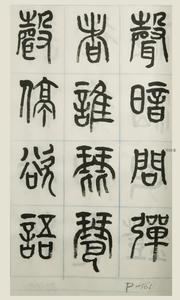 聲暗問彈
者誰琵琶
聲停欲語
P-161